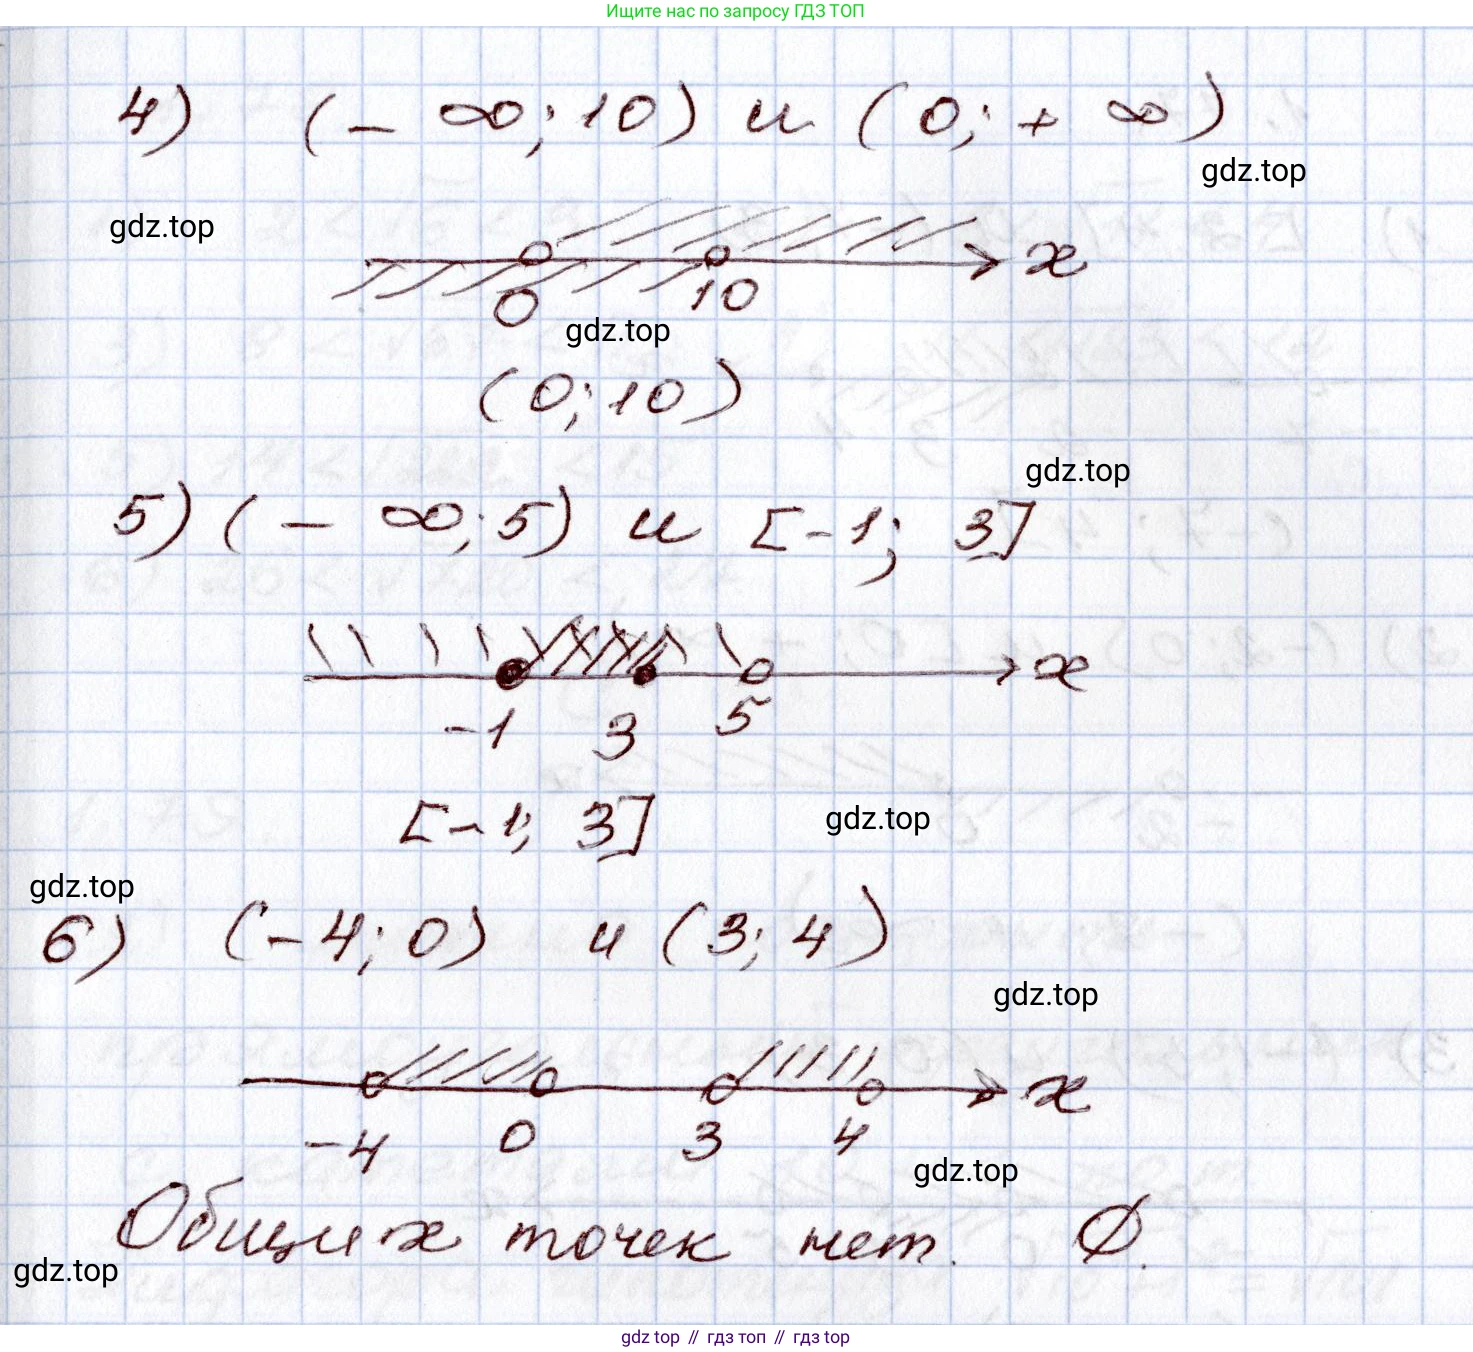 Ищите нас по запросу ГДЗ ТОП
4) (- ∞; 10) и (0; + ∞)
gdz.top
gdz.top
x
0 10
gdz.top
(0; 10)
gdz.top
5) (- ∞; 5) и [-1; 3]
x
-1 3 5
[-1; 3]
gdz.top
gdz.top
6) (-4; 0) и (3; 4)
gdz.top
x
-4 0 3 4
gdz.top
Общих точек нет. Ø.
gdz.top
gdz.top // гдз топ // гдз top